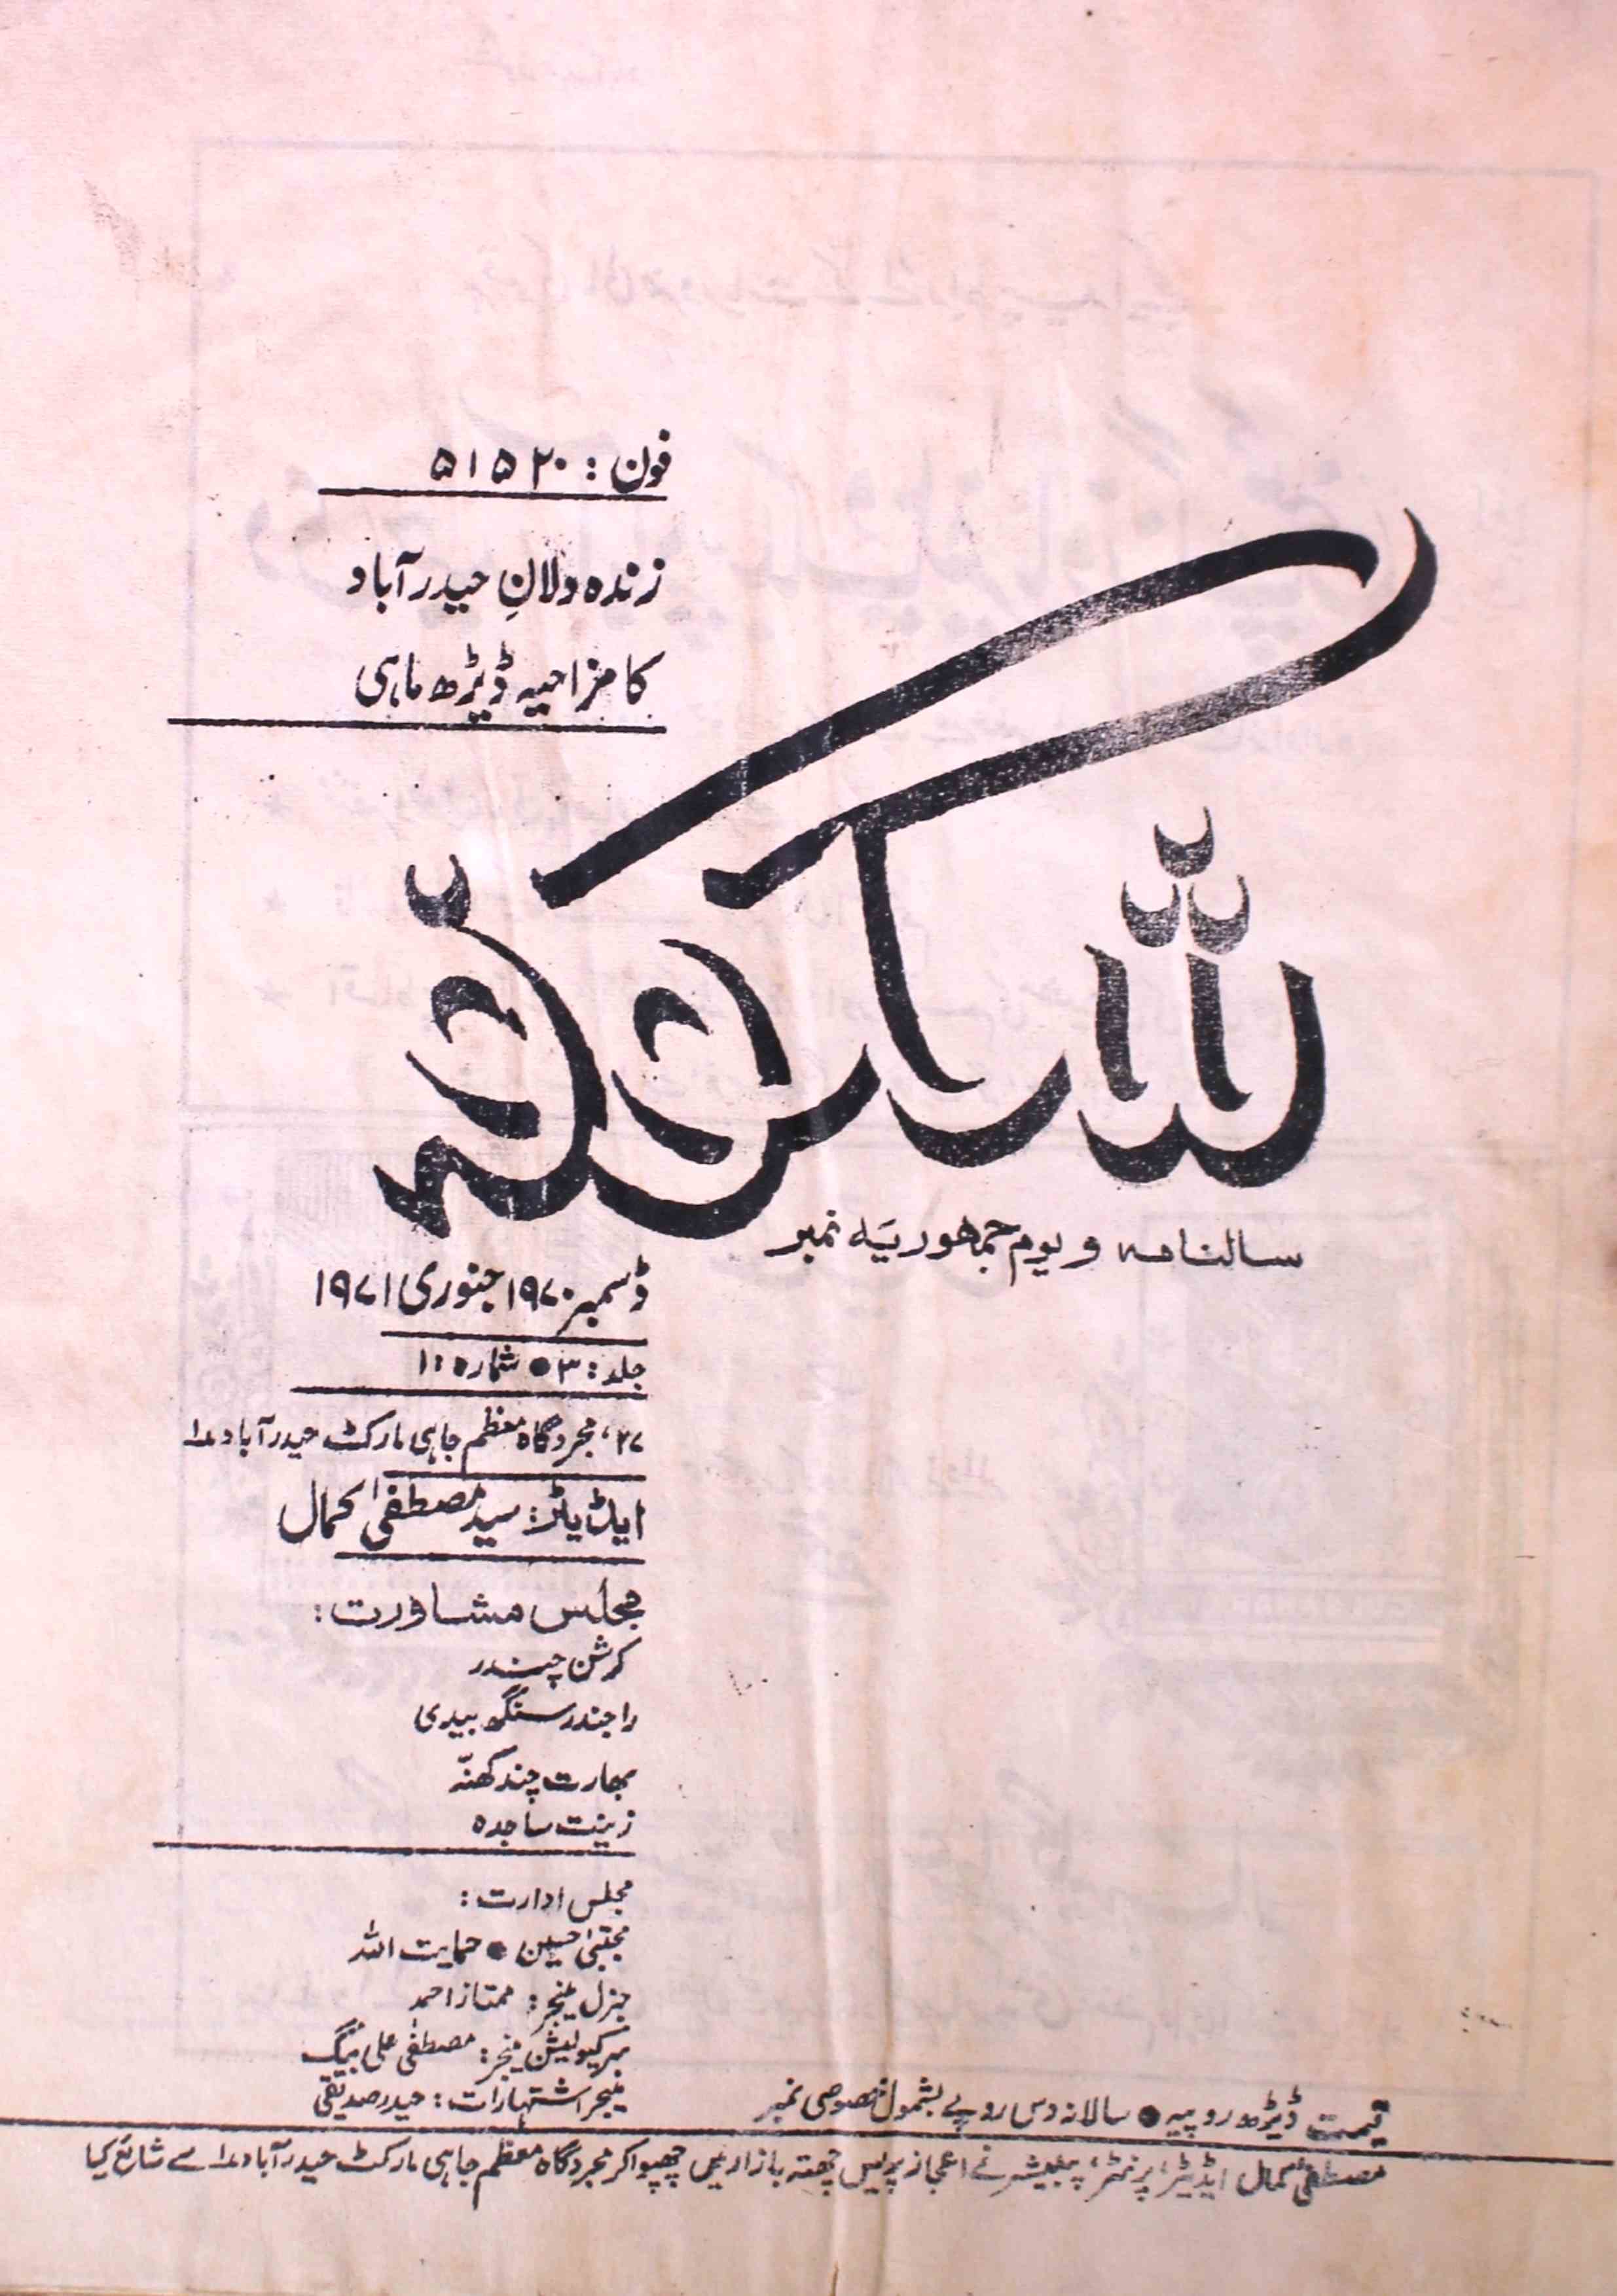 فون : ۵۱۵۲۰
زندہ دلانِ حیدرآباد
کا مزاحیہ ڈیڑھ ماہی
شگوفہ
سالنامہ و یوم جمہوریہ نمبر
ڈسمبر ۱۹۷۰ جنوری ۱۹۷۱
جلد : ۳ ● شمارہ : ۱
۳۷، مجردگاہ معظم جاہی مارکٹ حیدرآباد ۱
ایڈیٹر : سید مصطفیٰ کمال
مجلس مشاورت :
کرشن چندر
راجندر سنگھ بیدی
بھارت چند کھنّہ
زینت ساجدہ
مجلس ادارت :
مجتبیٰ حسین ● حمایت اللہ
جنرل منیجر : ممتاز احمد
سرکیولیشن منیجر : مصطفیٰ علی بیگ
منیجر اشتہارات : حیدر صدیقی
قیمت ڈیڑھ روپیہ ● سالانہ دس روپے بشمول خصوصی نمبر
مصطفیٰ کمال ایڈیٹر، پرنٹر، پبلیشر نے اعجاز پریس چھتہ بازار میں چھپوا کر مجردگاہ معظم جاہی مارکٹ حیدرآباد ۱ سے شائع کیا